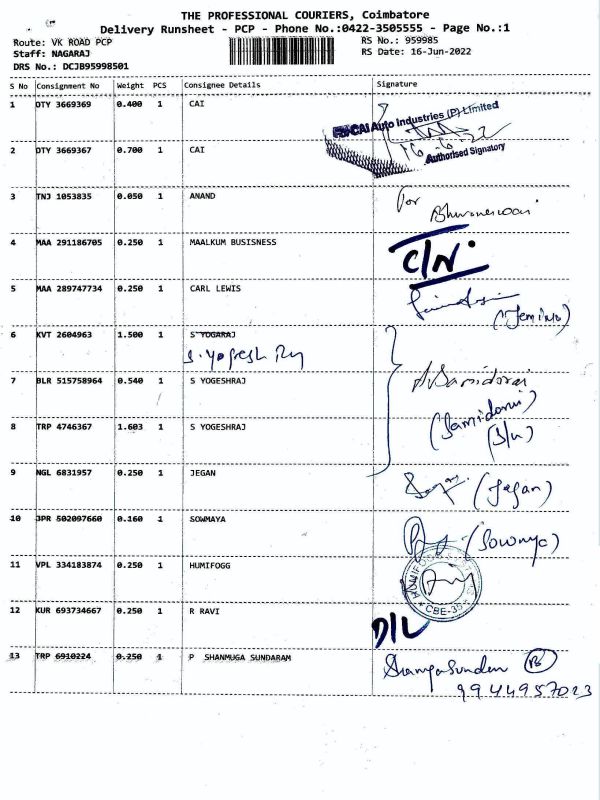 THE PROFESSIONAL COURIERS, Coimbatore
Delivery Runsheet - PCP - Phone No.:0422-3505555 - Page No.:1
Route: VK ROAD PCP
RS No.: 959985
Staff: NAGARAJ
RS Date: 16-Jun-2022
DRS No.: DCJB95998501
S No Consignment No Weight PCS Consignee Details Signature
1 DTY 3669369 0.400 1 CAI
For CAI Auto Industries (P) Limited
16.6.22
Authorised Signatory
2 DTY 3669367 0.700 1 CAI
3 TNJ 1053835 0.050 1 ANAND
For
Bhuvaneswari
4 MAA 291186705 0.250 1 MAALKUM BUSISNESS
C/N
5 MAA 289747734 0.250 1 CARL LEWIS
6 KVT 2604963 1.500 1 S YOGARAJ
S. Yogesh Raj
7 BLR 515758964 0.540 1 S YOGESHRAJ
A Samidorai
8 TRP 4746367 1.603 1 S YOGESHRAJ
(Samidorai)
9 NGL 6831957 0.250 1 JEGAN
(Jegan)
10 JPR 502097660 0.160 1 SOWMAYA
(Sowmya)
11 VPL 334183874 0.250 1 HUMIFOGG
CBE-35
12 KUR 693734667 0.250 1 R RAVI
D/L
13 TRP 6910224 0.250 1 P SHANMUGA SUNDARAM
9944957023